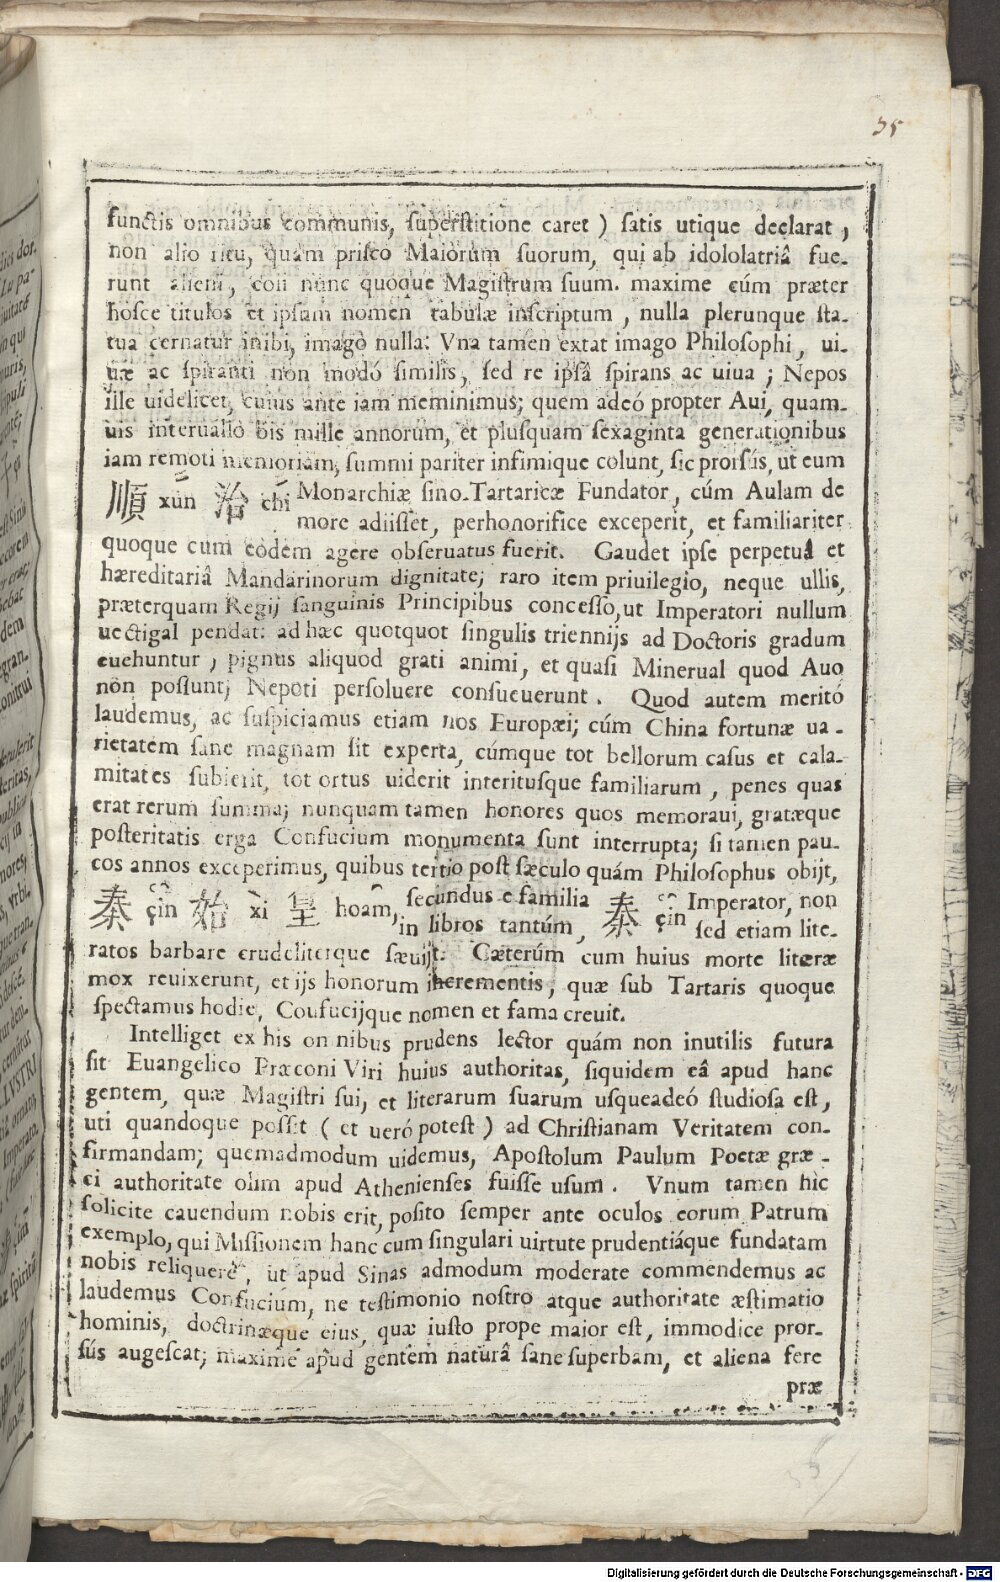 35
functis omnibus communis, superstitione caret ) satis utique declarat ,
non alio ritu, quàm prisco Maiorum suorum, qui ab idololatriâ fue-
runt alieni, coli nunc quoque Magistrum suum. maxime cúm præter
hosce titulos et ipsum nomen tabulæ inscriptum , nulla plerunque sta-
tua cernatur inibi, imago nulla: Vna tamen extat imago Philosophi, ui-
uæ ac spiranti non modó similis, sed re ipsâ spirans ac uiua ; Nepos
ille uidelicet, cuius ante iam meminimus; quem adeó propter Aui, quam-
uis interuallo bis mille annorum, et plusquam sexaginta generationibus
iam remoti memoriam, summi pariter infimique colunt, sic prorsús, ut eum
順 xún 治 chí Monarchiæ sino-Tartaricæ Fundator, cúm Aulam de
more adiisset, perhonorifice exceperit, et familiariter
quoque cum eodem agere obseruatus fuerit. Gaudet ipse perpetuâ et
hæreditariâ Mandarinorum dignitate; raro item priuilegio, neque ullis,
præterquam Regij sanguinis Principibus concesso, ut Imperatori nullum
uectigal pendat: ad hæc quotquot singulis triennijs ad Doctoris gradum
euehuntur, pignus aliquod grati animi, et quasi Minerual quod Auo
non possunt, Nepoti persoluere consueuerunt. Quod autem meritó
laudemus, ac suspiciamus etiam nos Europæi; cúm China fortunæ ua-
rietatem sane magnam sit experta, cúmque tot bellorum casus et cala-
mitates subierit, tot ortus uiderit interitusque familiarum, penes quas
erat rerum summa; nunquam tamen honores quos memoraui, gratæque
posteritatis erga Confucium monumenta sunt interrupta; si tamen pau-
cos annos exceperimus, quibus tertio post sæculo quám Philosophus obijt,
秦 çin 始 xi 皇 hoam, secundus e familia 秦 çin Imperator, non
in libros tantúm, sed etiam lite-
ratos barbare crudeliterque sæuijt. Cæterúm cum huius morte literæ
mox reuixerunt, et ijs honorum incrementis, quæ sub Tartaris quoque
spectamus hodie, Confucijque nomen et fama creuit.
Intelliget ex his omnibus prudens lector quám non inutilis futura
sit Euangelico Præconi Viri huius authoritas, siquidem eâ apud hanc
gentem, quæ Magistri sui, et literarum suarum usqueadeó studiosa est,
uti quandoque possit ( et ueró potest ) ad Christianam Veritatem con-
firmandam; quemadmodum uidemus, Apostolum Paulum Poetæ græ-
ci authoritate olim apud Athenienses fuisse usum. Vnum tamen hìc
solicite cauendum nobis erit, posito semper ante oculos eorum Patrum
exemplo, qui Missionem hanc cum singulari uirtute prudentiáque fundatam
nobis reliquere, ut apud Sinas admodum moderate commendemus ac
laudemus Confucium, ne testimonio nostro atque authoritate æstimatio
hominis, doctrinæque eius, quæ iusto prope maior est, immodice pror-
sús augescat; maxime apud gentem naturâ sane superbam, et aliena fere
præ
35
Digitalisierung gefördert durch die Deutsche Forschungsgemeinschaft - DFG